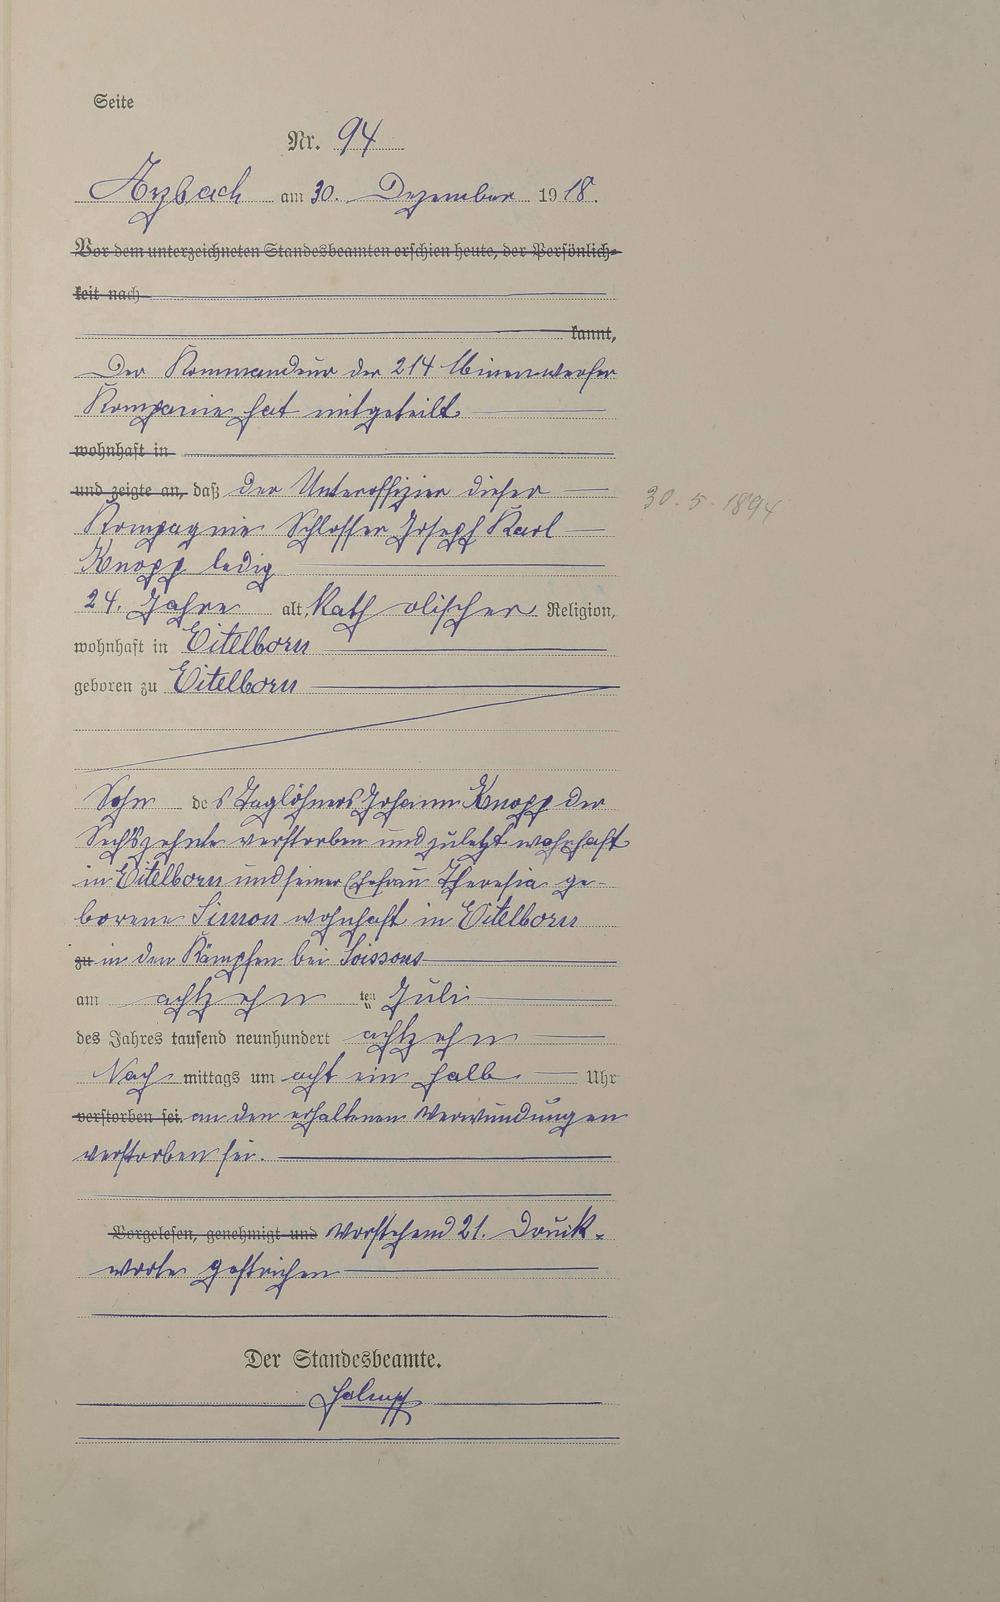 Seite
Nr. 94
Arzbach am 30. Dezember 1918.
Vor dem unterzeichneten Standesbeamten erschien heute, der Persönlich-
keit nach
kannt,
Der Kommandeur der 214 Minenwerfer
Kompanie hat mitgeteilt
wohnhaft in
und zeigte an, daß der Unteroffizier dieser
30.5.1894
Kompagnie Schlosser Joseph Karl
Knopp ledig
24. Jahre alt, Katholischer Religion,
wohnhaft in Eitelborn
geboren zu Eitelborn
Sohn des Taglöhners Johann Knopp der
verstorben und zuletzt wohnhaft
in Eitelborn und seiner Ehefrau Theresia ge-
borene Simon wohnhaft in Eitelborn
zu in den Kämpfen bei Soissons
am achtzehn ten Juli
des Jahres tausend neunhundert achtzehn
Nach mittags um acht ein halb Uhr
verstorben sei. an den erhaltenen Verwundungen
verstorben sei.
Vorgelesen, genehmigt und Vorstehend 21. Druck-
worte gestrichen
Der Standesbeamte.